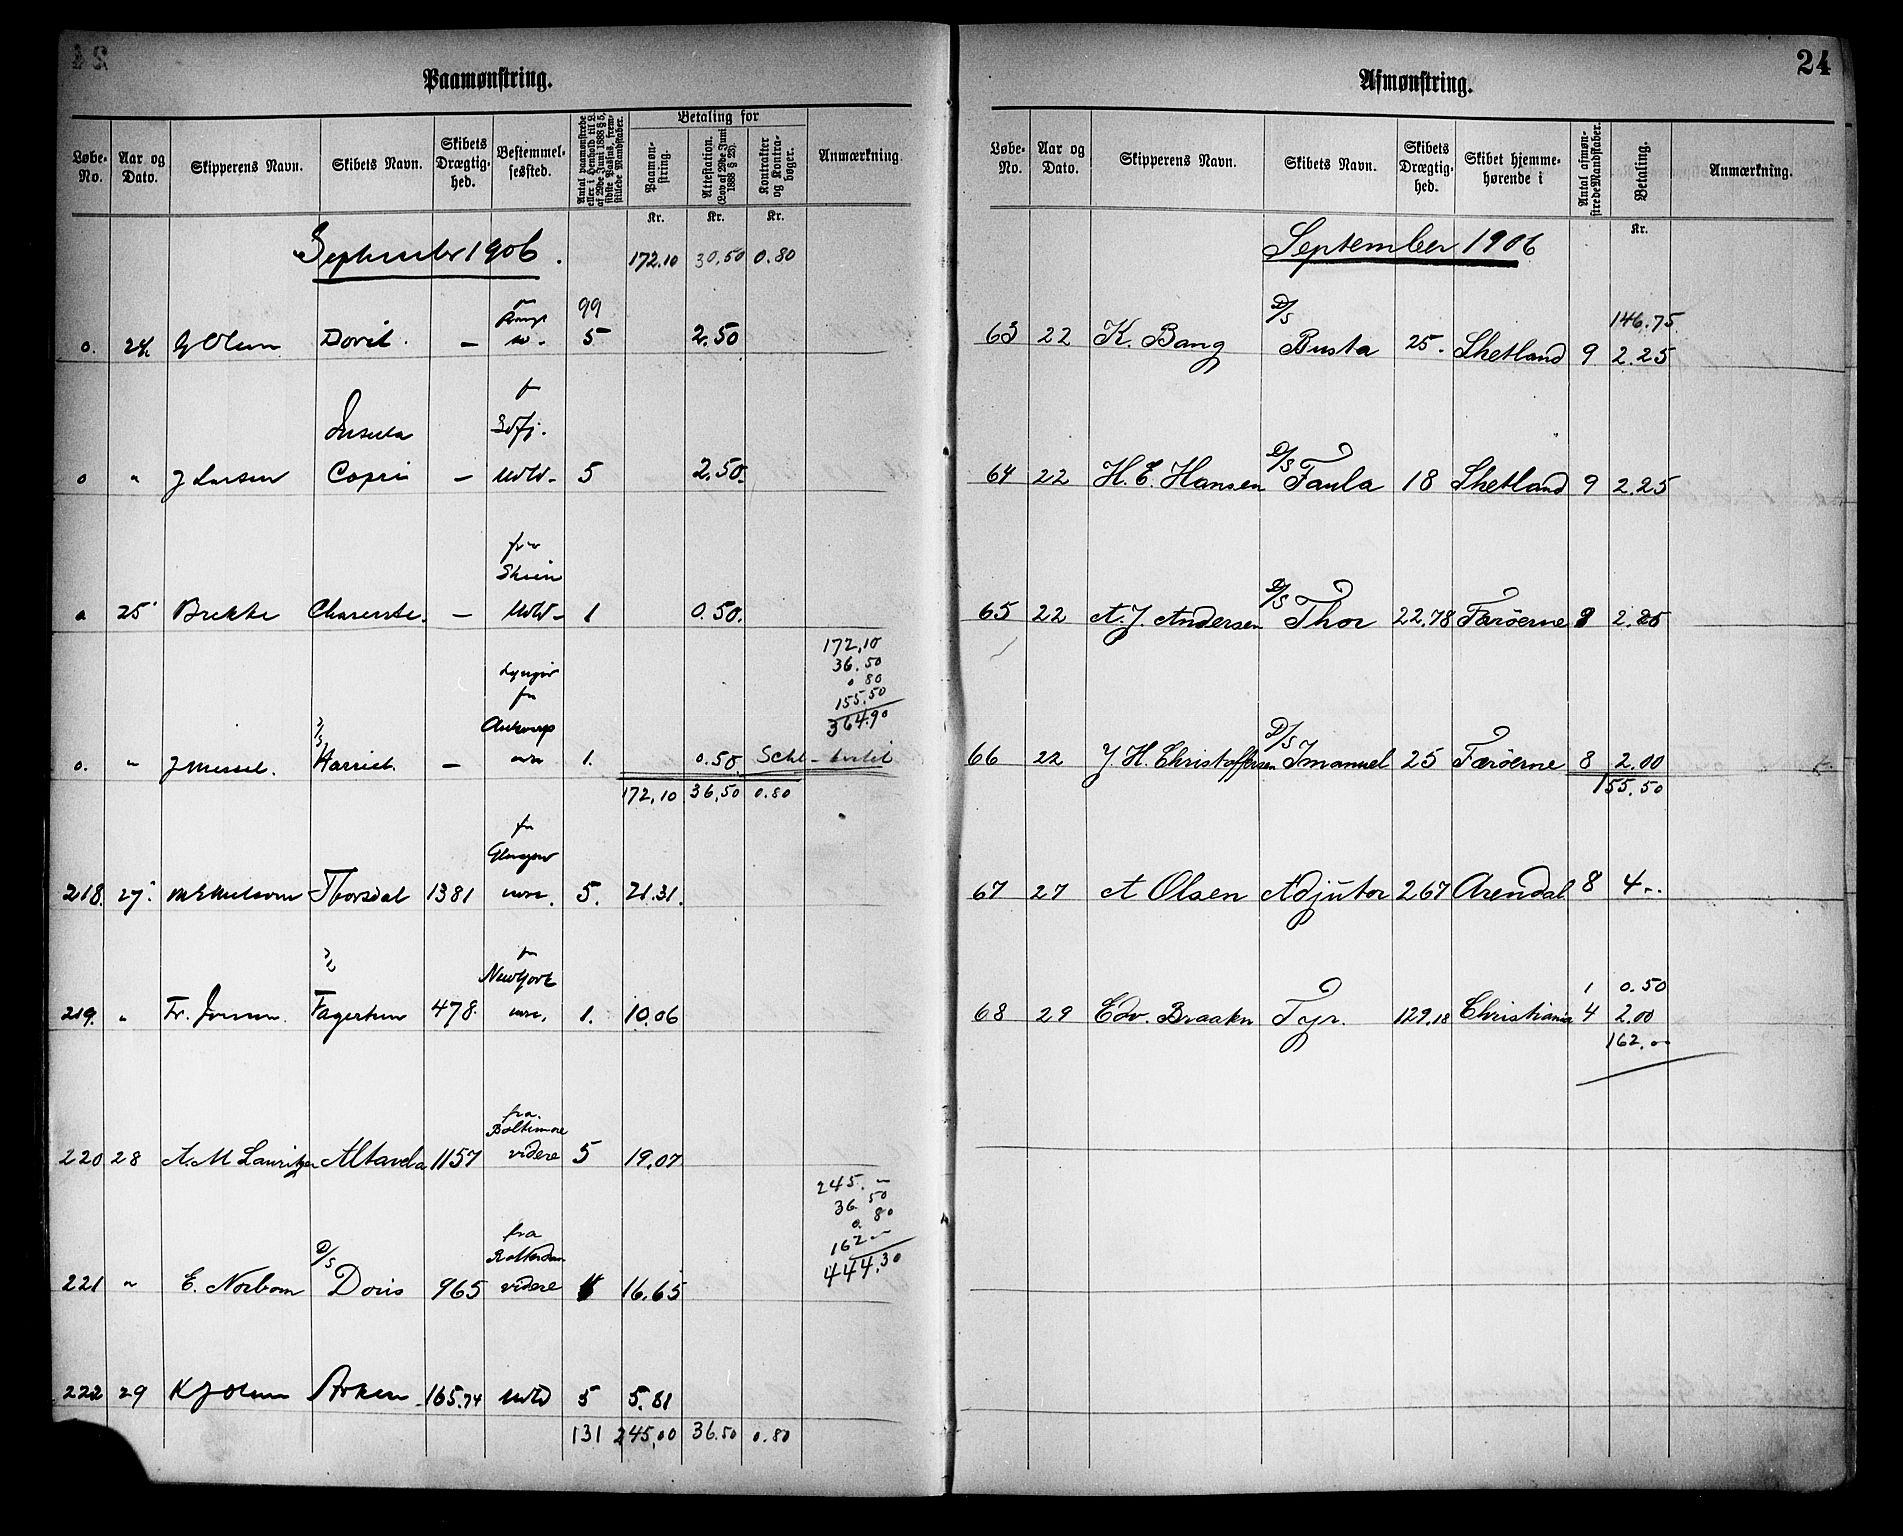 24
Paamønstring.
Løbe-No. Aar og Dato. Skipperens Navn. Skibets Navn. Skibets Drægtig-hed. Bestemmel-sessted. Betaling for Paamøn-string. Attestation. (Lov af 29de Juni 1888 § 23). Kontrakter og Kontra-bøger. Anmærkning.
Kr. Kr. Kr.
September 1906. 172.10 30,50 0.80
99
o. 24. G Olsen Dovit. — 5 2.50
fr
Insula
o " J Larsen Capri — Utld- 5 2.50.
fra
Skien
o 25 Brekke — Utld- 1 0.50.
172,10
36.50
0 80
155.50
364.90
Lyngør
fra
o. " J Missel. Harriet. — 1. 0.50.
172,10 36,50 0.80
fra
Glasgow
218. 27. Thorsdal 1381 5. 21.31.
fr
NewYork
219. " Fr. 478. 1. 10.06
fra.
Baltimore
220 28 A. M Lauritzen Altavela 1157 videre 5 19.07
245.—
36.50
0.80
162—
444.30
fra
D/S Rotterdam
221 " E. Norbom Doris 965 videre 16.65
222 29 K J Olsen 165.74 Utld 5 5.81
131 245,00 36.50 0.80
24
Afmønstring.
Løbe-No. Aar og Dato. Skipperens Navn. Skibets Navn. Skibets Drægtig-hed. Skibet hjemme-hørende i Antal afmøn-strede Mandskaber. Betaling. Anmærkning.
Kr.
September 1906
D/S 146.75
63 22 K. Bang Busta 25. Shetland 9 2.25
D/S
64 22 H. E. Hansen Faula 18 Shetland 9 2.25
D/S
65 22 A. J. Andersen Thor 22.78 Færöerne 2.25
D/S
66 22 J. H. Christoffersen Imanuel 25 Færöerne 8 2.00
155.50
67 27 A Olsen Adjutor 267 Arendal 8 4--
1 0.50
68 29 Edv. Braaten Tyr. 129,18 Christiania 4 2.00
162.—